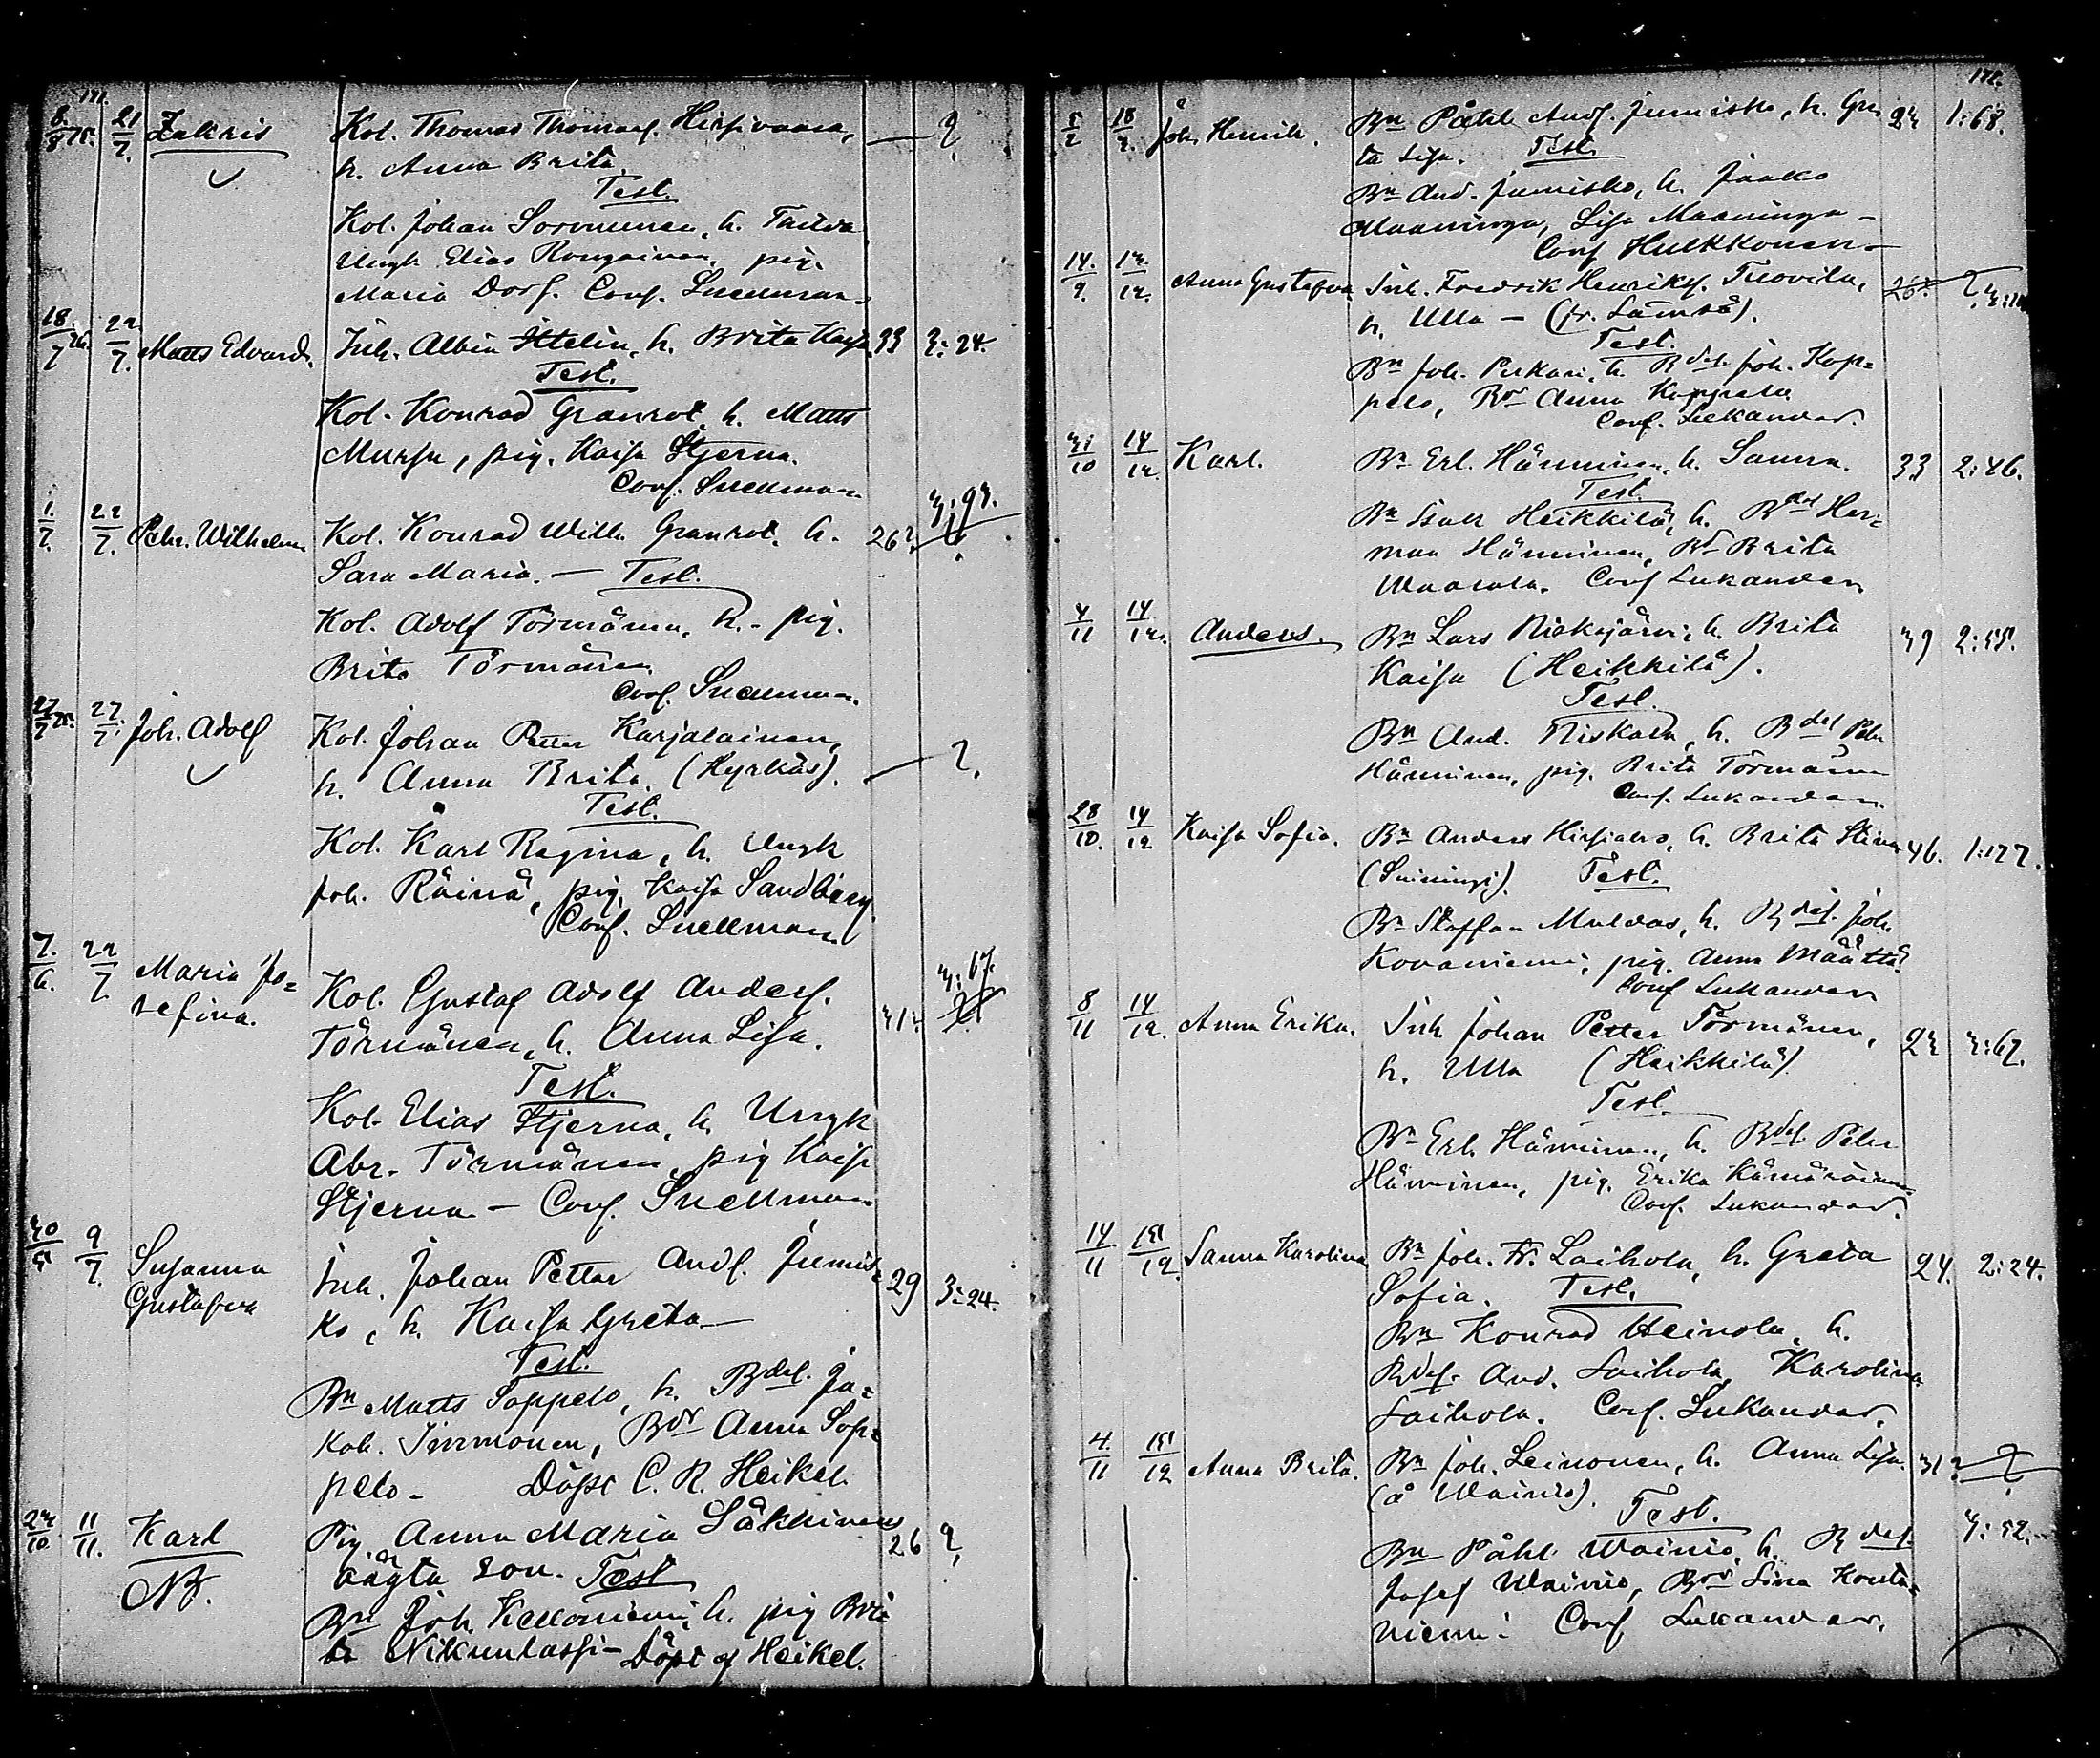 171.
8/8 75. 21/7. Zakris Kol. Thomas Thomasf. Hirsivaara, — ?
h. Anna Brita
Test.
Kol. Johan Sormunen, h. Thilda
Ungk Elias Rongainen, pig.
Maria Dorf. Conf. Snellman
18/7 76. 22/7. Matts Edvard. Inh. Albin Ittelin, h. Brita Kaisa 33 3:24.
Test.
Kol. Konrad Granrot, h. Matts
Mursu, pig. Kaisa Stjerna.
Conf. Snellman
1./7. 22/7. Pehr. Wilhelm Kol. Konrad Wilh. Granrot, h. 26? 3:93.
Sara Maria. — Test.
Kol. Adolf Törmänen, h. - pig.
Brita Törmänen
Conf. Snellman.
27/7 75. 27/7. Joh. Adolf Kol. Johan Petter Karjalainen, — ?
h. Anna Brita (Hyrkäs).
Test.
Kol. Karl Regina, h. Ungk
Joh. Räinä, pig. Kaisa Sandberg
Conf. Snellman
7./6. 22/7. Maria Jo= Kol. Gustaf Adolf Andersf. 31? 3:67.
sefina. Törmänen, h. Anna Lisa.
Test.
Kol. Elias Stjerna, h. Ungk
Abr. Törmänen, pig Kaisa
Stjerna — Conf. Snellman
30/5 9/7. Susanna Inh. Johan Petter Andf. Jumis= 29 3:24.
Gustafva ko, h. Kaisa Greta —
Test.
Bn Matts Soppelo, h. Bdef. Ja=
kob. Immonen, Bdr Anna Sop=
pelo - Döpt C. R. Heikel.
23/10 11/11. Karl Pig. Anna Maria Säkkinens 26 ?
NB. oägta son. Test
Bn Joh. Kelloniemi, h. pig Bri=
ta Nikunlassi - Döpt af Heikel.
172.
5/2 18/3. Joh. Henrik. Bn Påhl Andf. Jumisko, h. Gre 23 1:68.
ta Lisa. Test.
Bn And. Jumisko, h. Jaako
Maaninga, Lisa Maaninga -
Conf Hulkkonen -
14./9. 13/12. Anna Gustafva Inh. Fredrik Henriksf. Tuovila, 26?
h. Ulla — (fr. Lämsä).
Test.
Bn Joh. Pirkari, h. Bdef. Joh. Kop=
pelo, Bdr Anna Koppelo
Conf. Lukander.
31/10 14/12. Karl. Bn Erl. Hänninen, h. Sanna. 33 2:46.
Test.
Bn Isak Heikkilä, h. Bdef Her=
man Hänninen, Bdr Brita
Conf Lukander
4/11 14/12. Anders. Bn Lars Niskajärvi, h. Brita 39 2:55.
Kaisa (Heikkilä).
Test.
Bn And. Niskala, h. Bdef Pehr
Hänninen, pig. Brita Törmänen
Conf. Lukander
28/10. 14/12 Kaisa Sofia. Bn Anders Hirsiaho, h. Brita Stina 46. 1:127.
(Suiningi). Test.
Bn Staffan Muldas, h. Bdef. Joh.
Kovaniemi, pig. Anna Määttä
Conf Lukander
8/11 14/12. Anna Erika. Inh Johan Petter Törmänen, 23 3:67.
h. Ulla (Heikkilä)
Test.
Bn Erl. Hänninen, h. Bdef. Pehr
Hänninen, pig. Erika Kämäräinen
Conf. Lukander.
14/11 15/12. Sanna Karolina Bn Joh. Fr. Laihola, h. Greta 24. 2:24.
Sofia. Test.
Bn Konrad Heinola, h.
Bdef. And. Laihola, Karolina
Laihola. Conf. Lukander.
4./11 15/12 Anna Brita. Bn Joh. Leinonen, h. Anna Lisa. 31?
(å Wainio). Test. 3:52.
Bn Påhl Wainio, h. Bdef.
Josef Wainio, Bdr Lina Konta=
niemi. Conf Lukander.